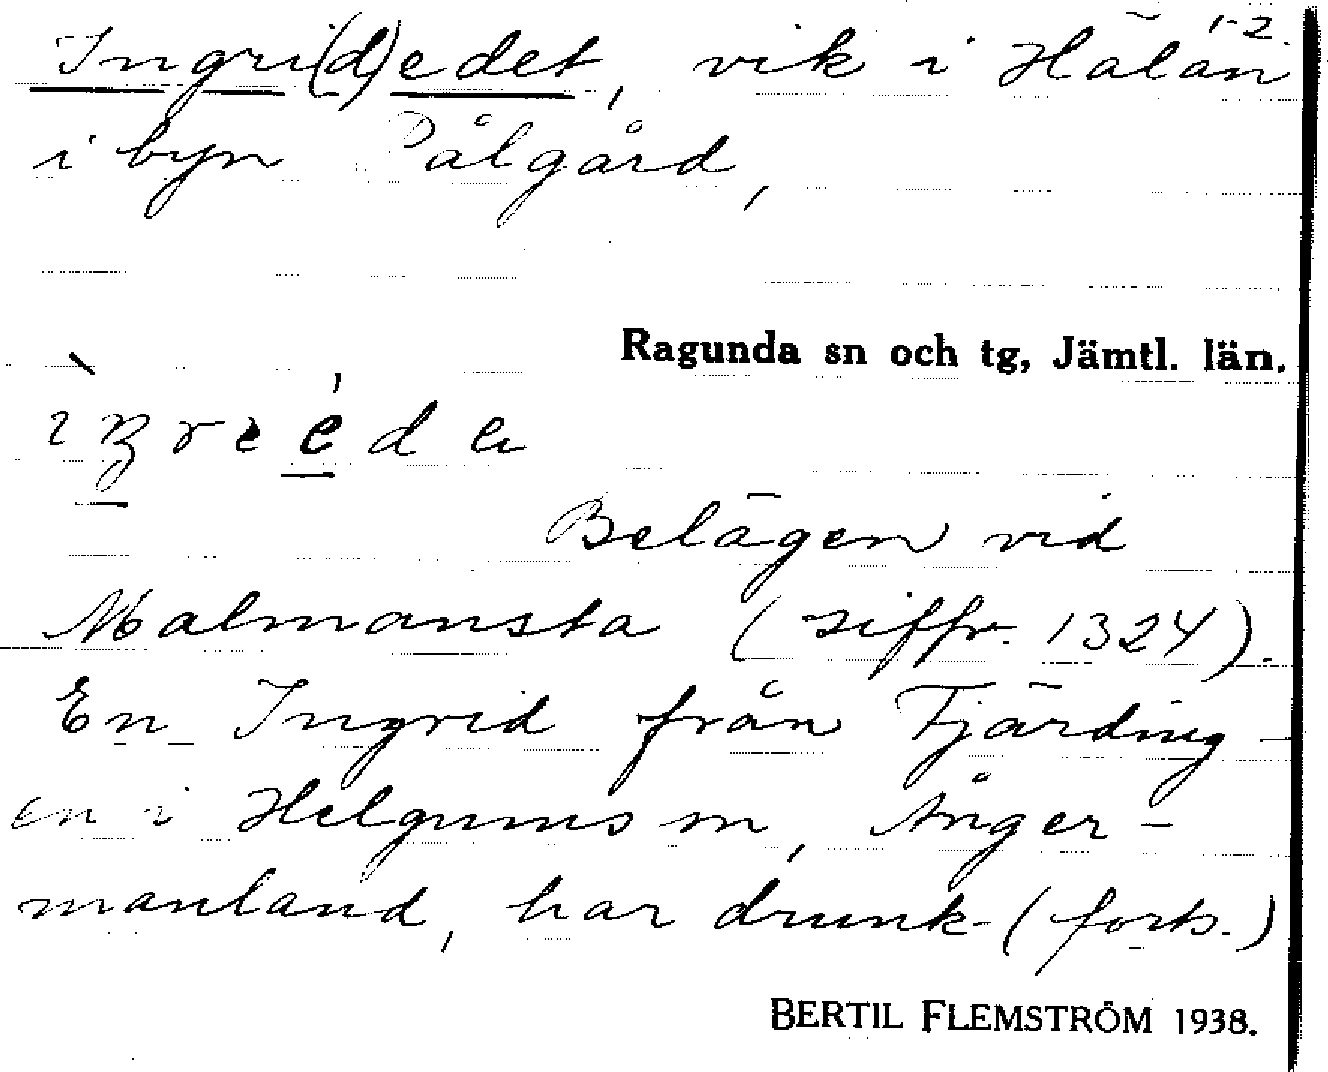 Ingri(d)edet, vik i Hälån 1-2
i byn Pålgård,
Ragunda sn och tg, Jämtl. län.
Belägen vid
Malmansta (siffr. 1324).
En Ingrid från Fjärding-
en i Helgums sn, Ånger-
manland, har drunk- (forts.)
BERTIL FLEMSTRÖM 1938.